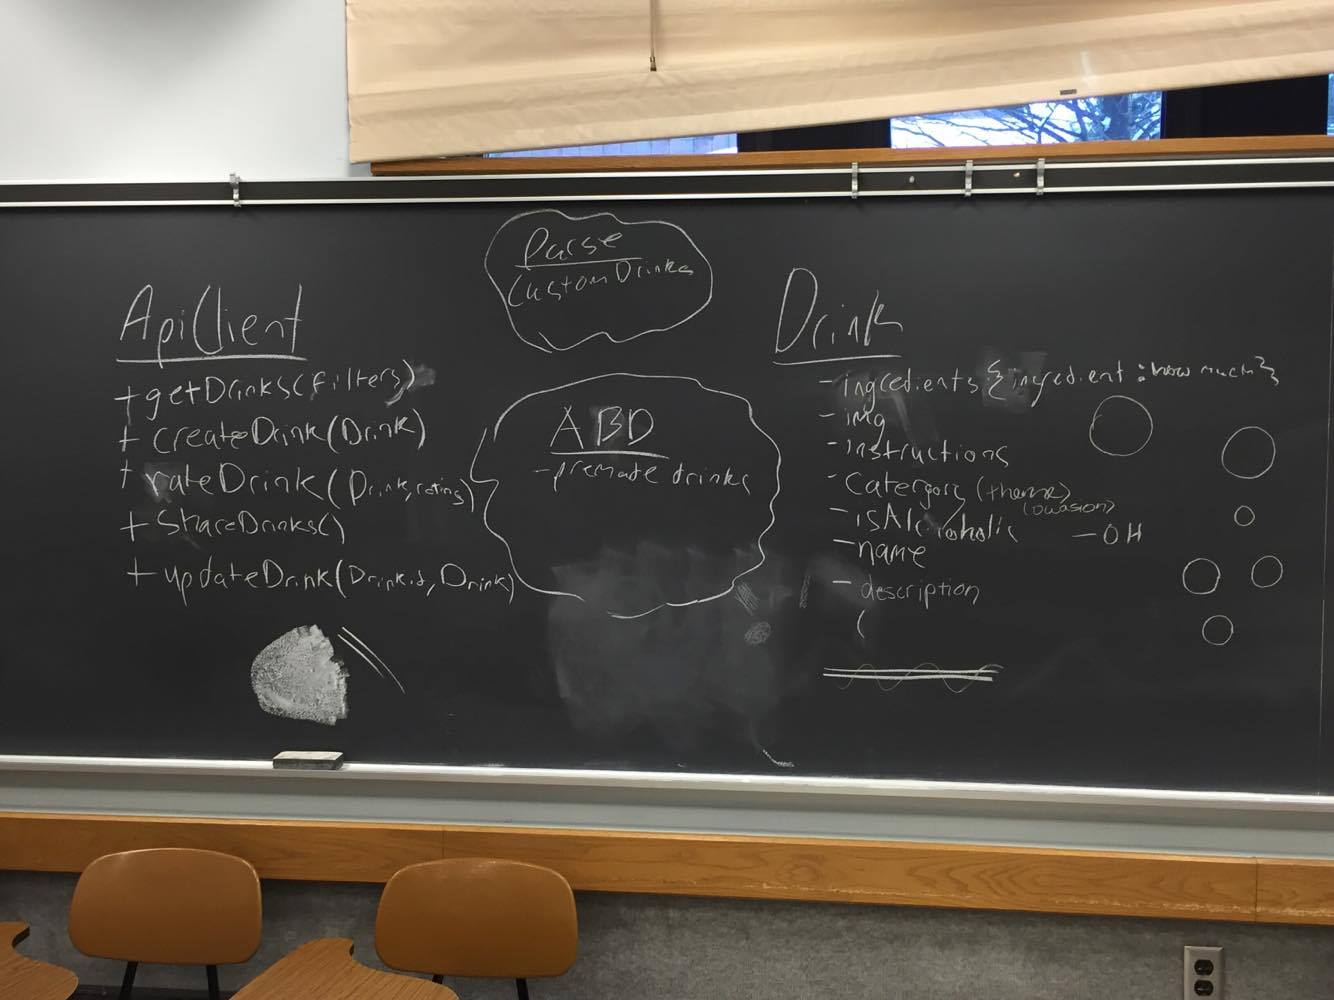 Parse
CustomDrinks
ApiClient
+getDrinks(filters)
+ createDrink(Drink)
+ rateDrink(Drink,rating)
+ ShareDrinks()
+ updateDrink(Drinkid, Drink)
ABD
- premade drinks
Drink
- ingredients {ingredient : how much}
- img
- instructions
- Catergory (theme)
(occasion)
- isAlcoholic - OH
- name
- description
(